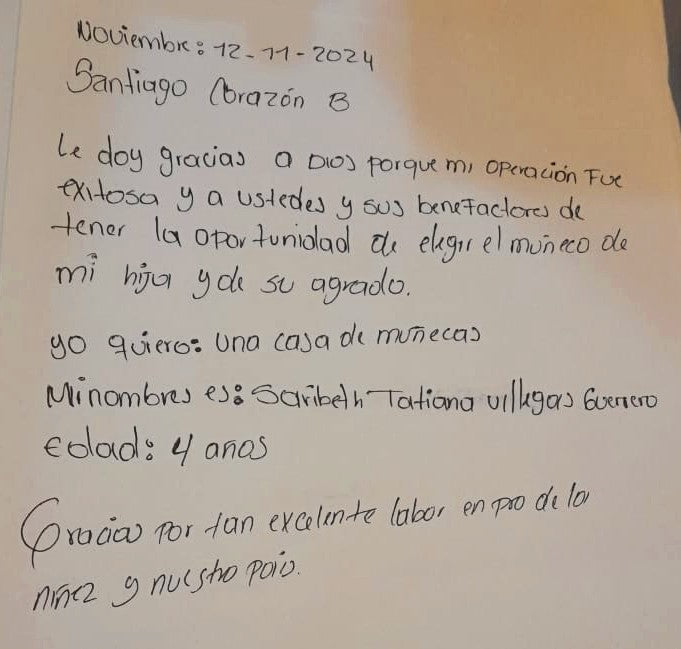 Noviembre: 12-11-2024
Santiago Corazón B
Le doy gracias a Dios porque mi operación fue
exitosa y a ustedes y sus benefactores de
tener la oportunidad de elegir el muñeco de
mi hija y de su agrado.
yo quiero: una casa de muñecas
Mi nombres es: Saribeth Tatiana Villegas Guerrero
Edad: 4 años
Gracias por tan excelente labor en pro de la
niñez y nuestro país.